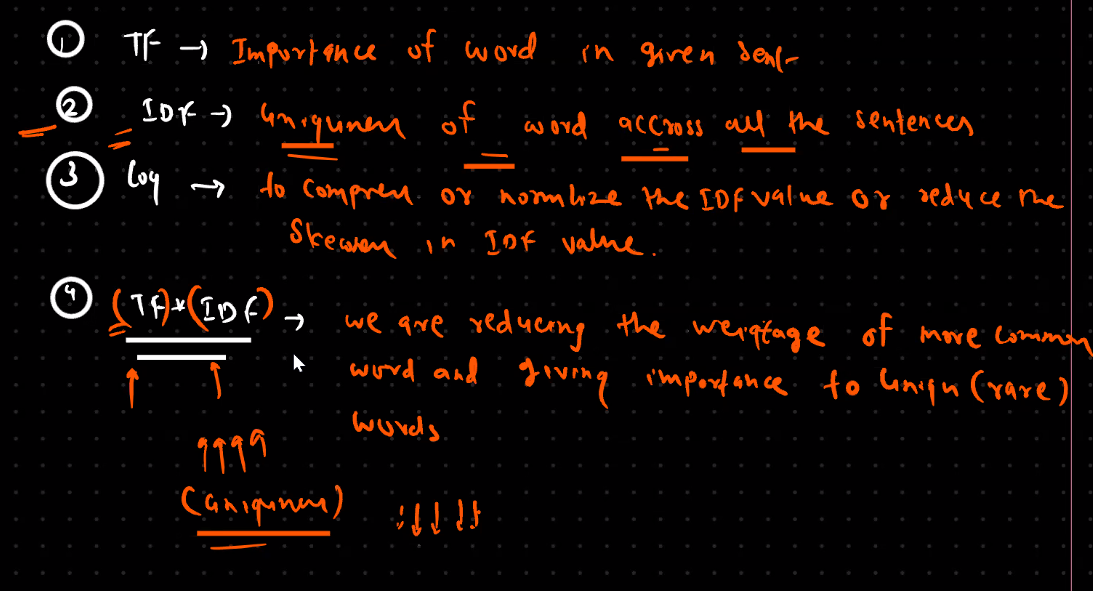 1 TF → Importance of word in given sent-
2 IDF → uniquness of word accross all the sentences
3 log → to compress or normlize the IDF value or reduce the
Skewness in IDF value.
4 (TF)*(IDF) → we are reducing the weigtage of more common
word and giving importance to uniqu (rare)
words
(uniquness)